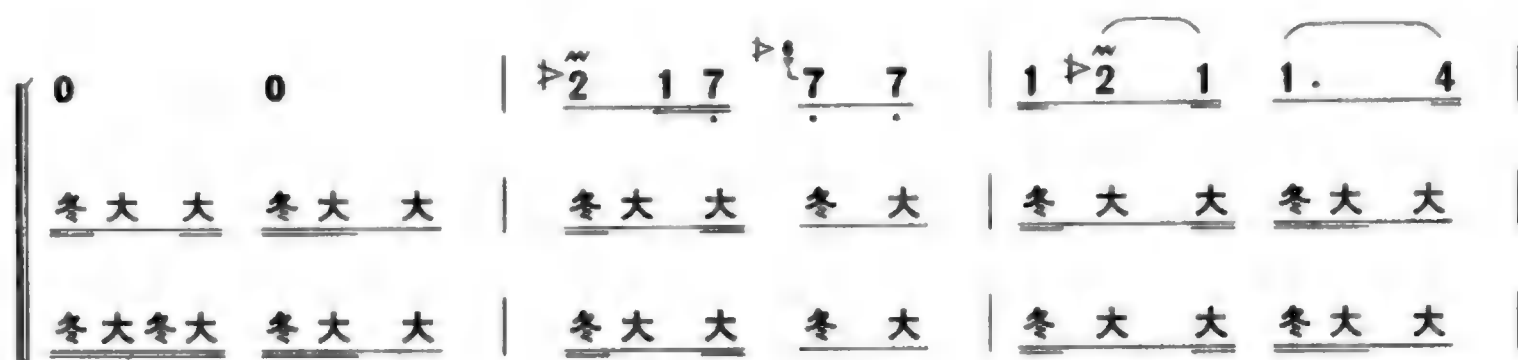 0 0 | 2 1 7 7 7 | 1 2 1 1 . 4
冬 大 大 冬 大 大 | 冬 大 大 冬 大 | 冬 大 大 冬 大 大
冬 大 冬 大 冬 大 大 | 冬 大 大 冬 大 | 冬 大 大 冬 大 大